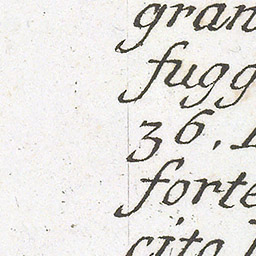 gran
fugg
36.
forte
cito